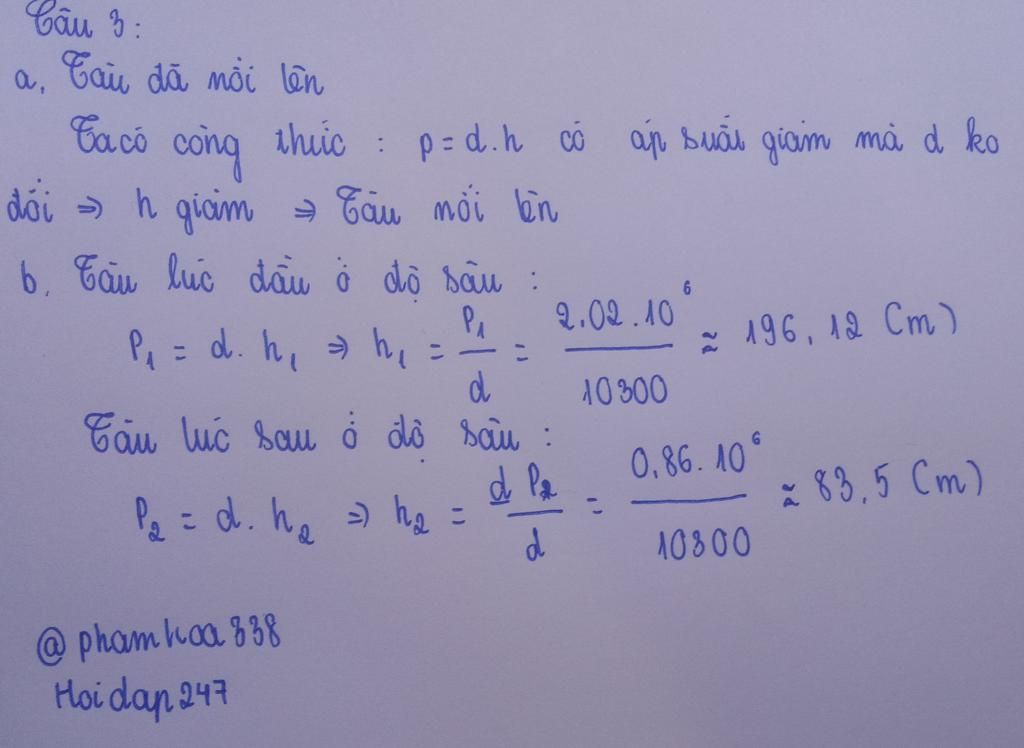 Câu 3:
a, Tàu đã nổi lên
Ta có công thức : p = d.h có áp suất giảm mà d ko
đổi => h giảm => Tàu nổi lên
b. Tàu lúc đầu ở độ sâu :
P₁ = d. h₁ => h₁ = P₁/d = 2,02.10⁶/10300 ≈ 196,12 (m)
Tàu lúc sau ở độ sâu :
P₂ = d. h₂ => h₂ = d P₂/d = 0,86.10⁶/10300 ≈ 83,5 (m)
@phamhoa338
Hoidap247